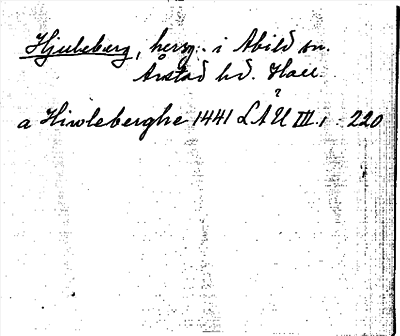 Hjuleberg, hersg. i Abild sn.
Årstad hd. Hall.
a Hiwleberghe 1441 LÄU III.1. 220